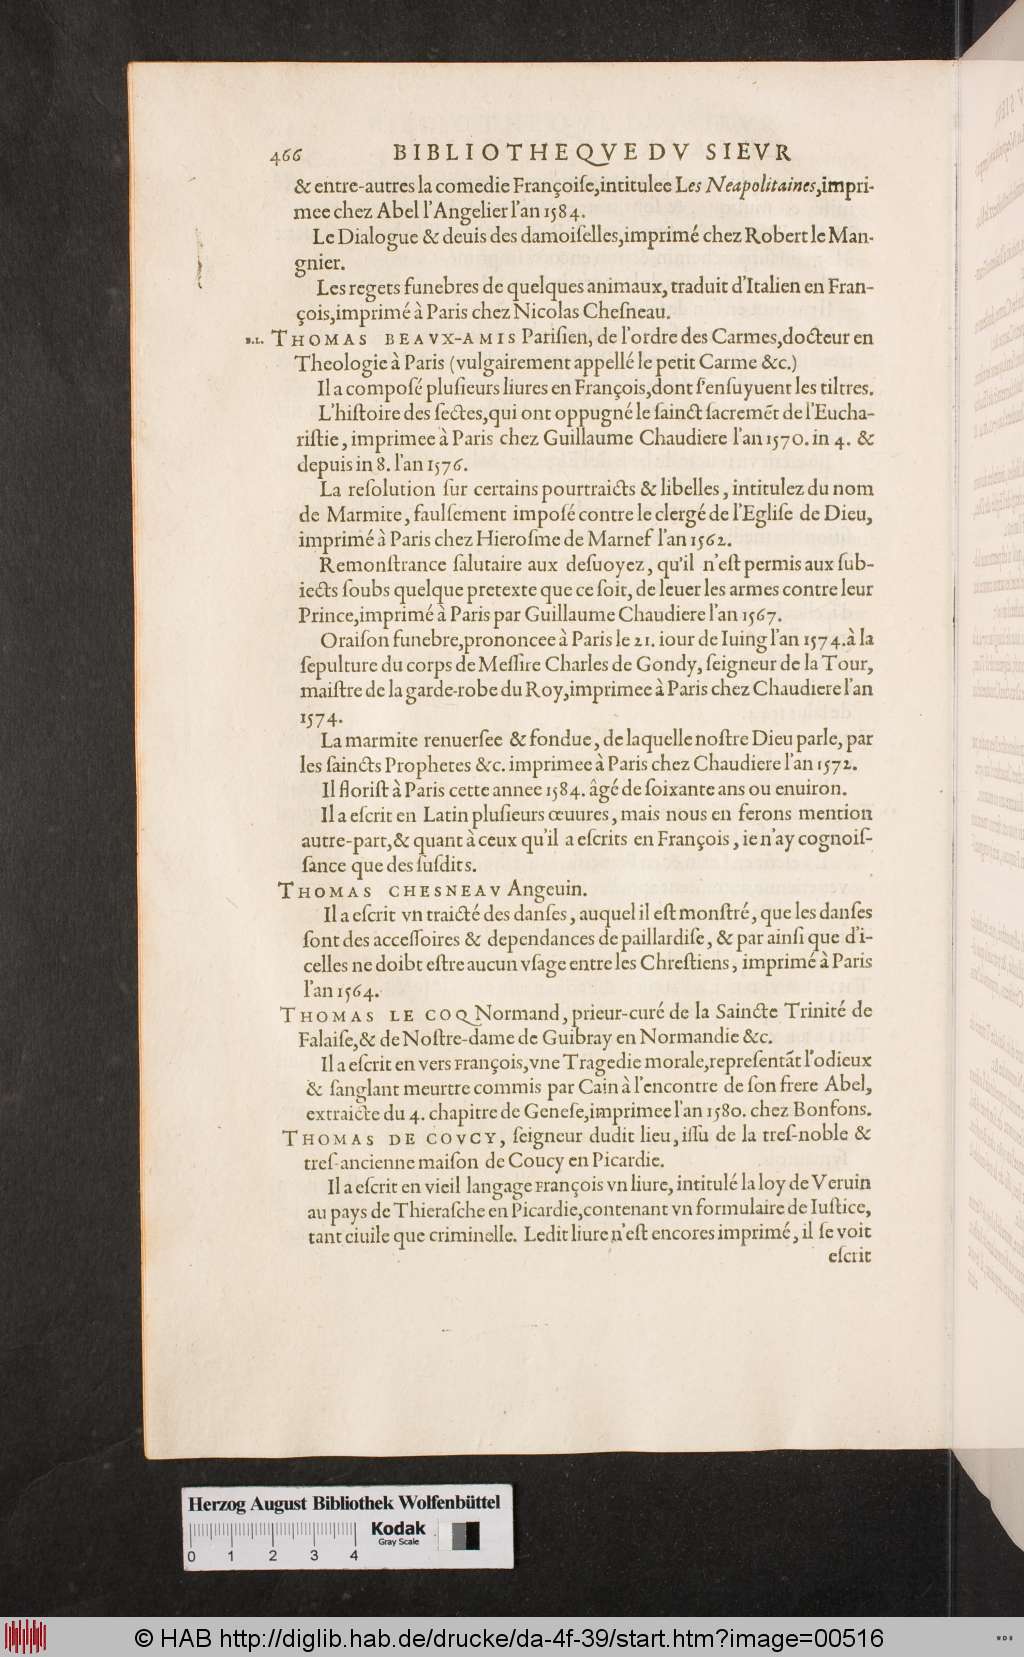 466 BIBLIOTHEQVE DV SIEVR
& entre-autres la comedie Françoiſe,intitulee Les Neapolitaines,impri-
mee chez Abel l'Angelier l'an 1584.
Le Dialogue & deuis des damoiſelles,imprimé chez Robert le Man-
gnier.
Les regets funebres de quelques animaux, traduit d'Italien en Fran-
çois,imprimé à Paris chez Nicolas Cheſneau.
B.L. THOMAS BEAVX-AMIS Pariſien, de l'ordre des Carmes,docteur en
Theologie à Paris (vulgairement appellé le petit Carme &c.)
Il a compoſé pluſieurs liures en François,dont ſ'enſuyuent les tiltres.
L'hiſtoire des ſectes,qui ont oppugné le ſainct ſacremẽt de l'Eucha-
riſtie, imprimee à Paris chez Guillaume Chaudiere l'an 1570. in 4. &
depuis in 8. l'an 1576.
La reſolution ſur certains pourtraicts & libelles, intitulez du nom
de Marmite, faulſement impoſé contre le clergé de l'Egliſe de Dieu,
imprimé à Paris chez Hieroſme de Marnef l'an 1562.
Remonſtrance ſalutaire aux deſuoyez, qu'il n'eſt permis aux ſub-
iects ſoubs quelque pretexte que ce ſoit, de leuer les armes contre leur
Prince,imprimé à Paris par Guillaume Chaudiere l'an 1567.
Oraiſon funebre,prononcee à Paris le 21. iour de Iuing l'an 1574.à la
ſepulture du corps de Meſſire Charles de Gondy, ſeigneur de la Tour,
maiſtre de la garde-robe du Roy,imprimee à Paris chez Chaudiere l'an
1574.
La marmite renuerſee & fondue, de laquelle noſtre Dieu parle, par
les ſaincts Prophetes &c. imprimee à Paris chez Chaudiere l'an 1572.
Il floriſt à Paris cette annee 1584. âgé de ſoixante ans ou enuiron.
Il a eſcrit en Latin pluſieurs œuures, mais nous en ferons mention
autre-part,& quant à ceux qu'il a eſcrits en François, ie n'ay cognoiſ-
ſance que des ſuſdits.
THOMAS CHESNEAV Angeuin.
Il a eſcrit vn traicté des danſes, auquel il eſt monſtré, que les danſes
ſont des acceſſoires & dependances de paillardiſe, & par ainſi que d'i-
celles ne doibt eſtre aucun vſage entre les Chreſtiens, imprimé à Paris
l'an 1564.
THOMAS LE COQ Normand, prieur-curé de la Saincte Trinité de
Falaiſe,& de Noſtre-dame de Guibray en Normandie &c.
Il a eſcrit en vers François,vne Tragedie morale,repreſentãt l'odieux
& ſanglant meurtre commis par Cain à l'encontre de ſon frere Abel,
extraicte du 4. chapitre de Geneſe,imprimee l'an 1580. chez Bonfons.
THOMAS DE COVCY, ſeigneur dudit lieu, iſſu de la treſ-noble &
treſ-ancienne maiſon de Coucy en Picardie.
Il a eſcrit en vieil langage François vn liure, intitulé la loy de Veruin
au pays de Thieraſche en Picardie,contenant vn formulaire de Iuſtice,
tant ciuile que criminelle. Ledit liure n'eſt encores imprimé, il ſe voit
eſcrit
Herzog August Bibliothek Wolfenbüttel
Kodak
Gray Scale
0 1 2 3 4
© HAB http://diglib.hab.de/drucke/da-4f-39/start.htm?image=00516